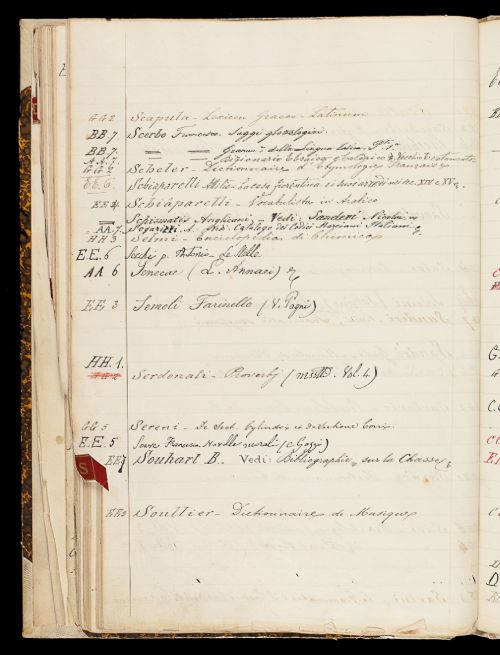 GG 2 Scapula - Lexicon Graeco-Latinum
BB. 7. Scerbo Francesco. Saggi glottologici
BB. 7. — — Gramm. della lingua latina. Pte 1a
AA. 7. Dizionario Ebraico e Caldaico d. Vecchio Testamento
GG 2 Scheler - Dictionnaire d'Etymologie Française
EE. 6. Schiaparelli Attilio - La casa fiorentina e i suoi arredi nei sec. XIV e XV
EE 4 Schiaparelli - Vocabulista in Arabico
— Schismatis Anglicani - Vedi: Sanderi Nicolai
AA. 7. Segarizzi A. Prof. Catalogo dei Codici Marciani Italiani
HH 3 Selmi - Enciclopedia di Chimica
EE. 6 Secchi p. Antonio - Le Stelle
AA 6 Senecae (L. Annaei)
EE 3 Semeli Farinello (V. Pagni)
HH. 1.
HH 2 Serdonati - Proverbj (mss. Vol. 4)
GG 5 Sereni - De Sect. Cylindri et de Sectione Coni
E. E. 5 Soave Francesco Novelle morali (e Gozzi)
S
EE 7 Souhart B. Vedi: Bibliographie sur la Chasse
EE 2 Soullier - Dictionnaire de Musique